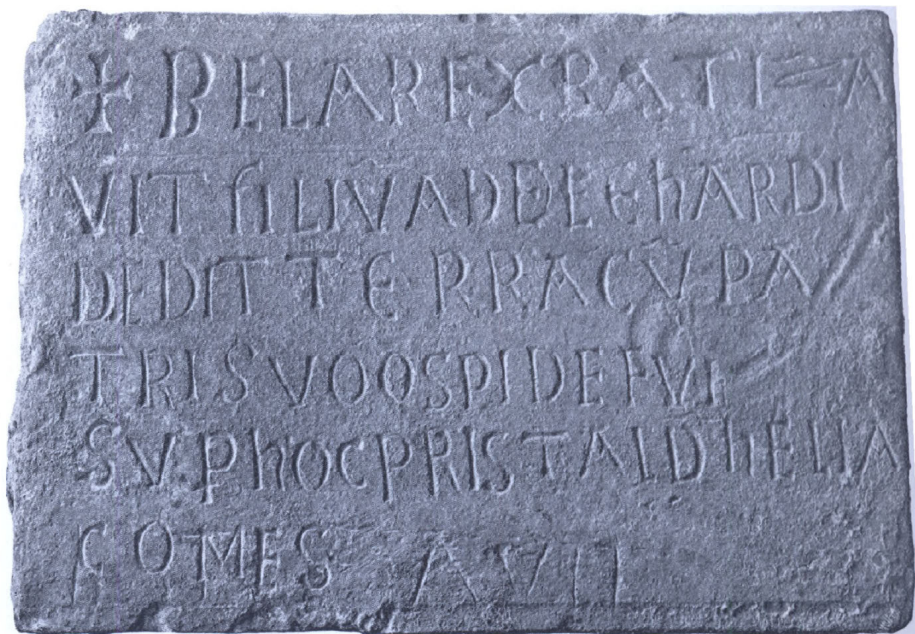 ✝ BELAREXBATIZA
VIT FILIV̄ADELEhARDI
DEDIT TERRACV̄PA
TRISVOOSPIDE
SVPhOCPRISTALDhELIA
COMES